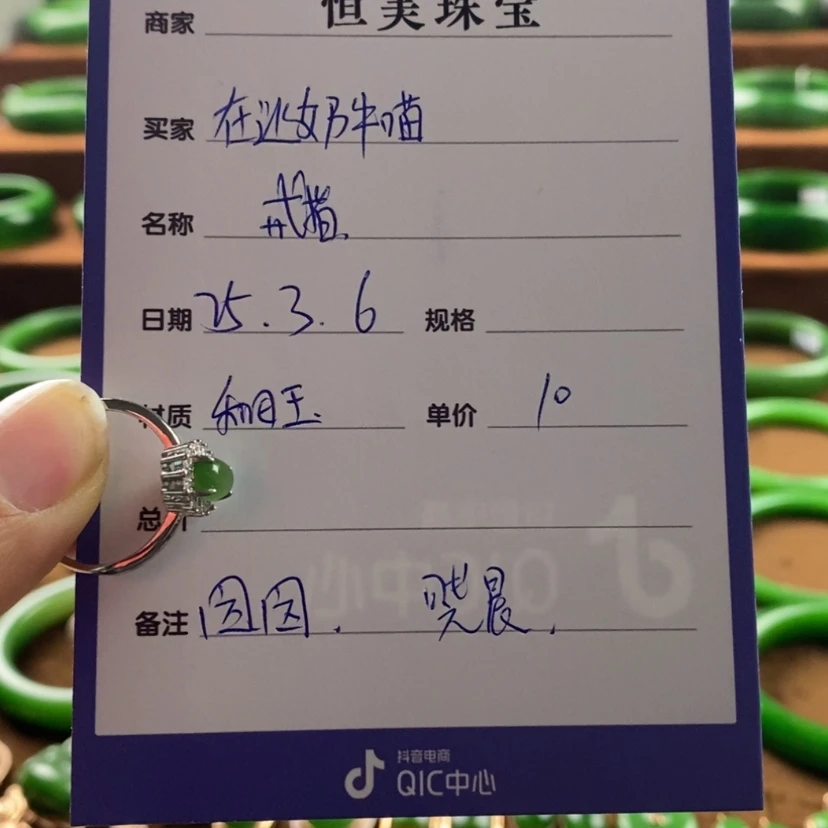 商家 恒美珠宝
买家 在逃奶牛喵
名称 戒指
日期 25.3.6 规格
材质 和田玉 单价 10
总价
备注 囡囡. 晓晨.
抖音电商
QIC中心